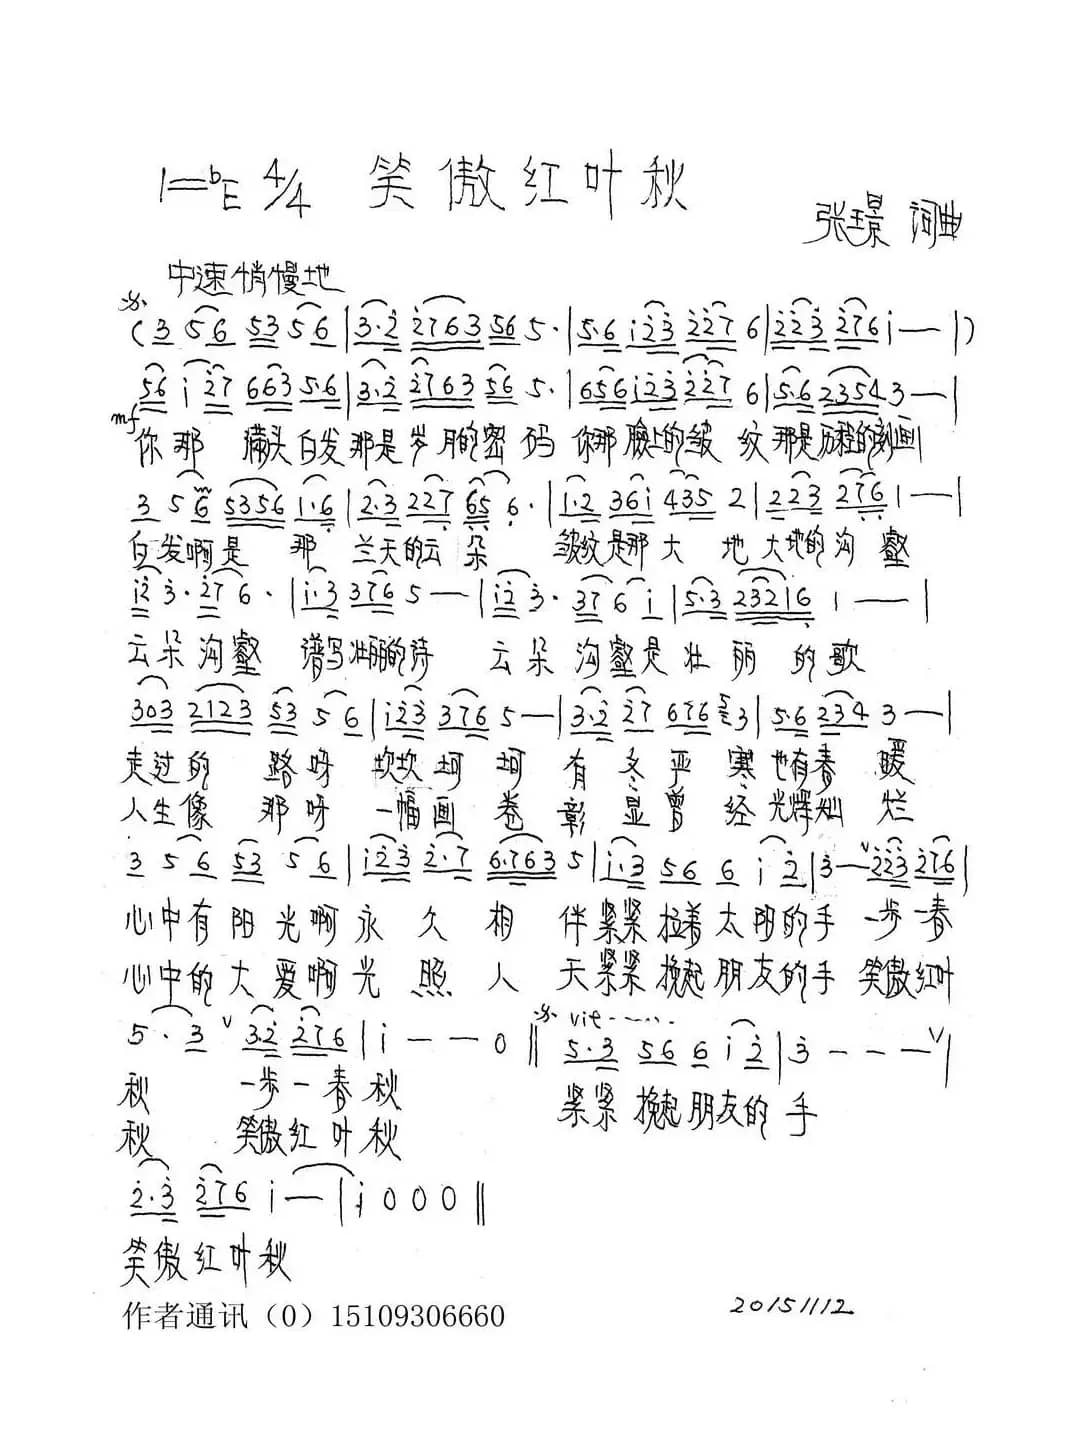 1=bE 4/4 笑傲红叶秋
张璟 词曲
中速悄慢地
(3 56 53 56 | 3·2 2763 56 5· | 5·6 123 2276 | 223 276 1 — |)
56 1 27 663 5·6 | 3·2 2763 56 5· | 656 123 227 6 | 5·6 2354 3 — |
mf 你那 满头白发那是岁月的密码 你那脸上的皱纹那是历程的刻画
3 56 5356 1·6 | 2·3 227 65 6· | 1·2 361 435 2 | 223 276 1 — |
白发啊是 那 兰天的云朵 皱纹是那大地大地的沟壑
12 3· 27 6· | 1·3 376 5 — | 12 3· 37 6 1 | 5·3 23216 1 — — |
云朵沟壑 谱写壮丽的诗 云朵沟壑是壮丽的歌
303 2123 53 5 6 | 123 376 5 — | 3·2 27 676 5 3 | 5·6 234 3 — |
走过的 路呀 坎坎坷坷 有冬严寒也有春暖
人生像 那呀 一幅画卷 彰显曾经光辉灿烂
3 5 6 53 5 6 | 123 2·7 6·763 5 | 1·3 56 6 1 2 | 3 — V 223 276 |
心中有阳光啊永久相伴紧紧拉着太阳的手 一步一春
心中的大爱啊光照人天紧紧挽起朋友的手 笑傲红叶
5·3 V 3·2 276 | 1 — — 0 ‖ vit ······ 5·3 56 6 1 2 | 3 — — — V |
秋 一步一春秋
紧紧挽起朋友的手
秋 笑傲红叶秋
2·3 276 1 — | 1 0 0 0 ‖
笑傲红叶秋
作者通讯（0）15109306660
20151112